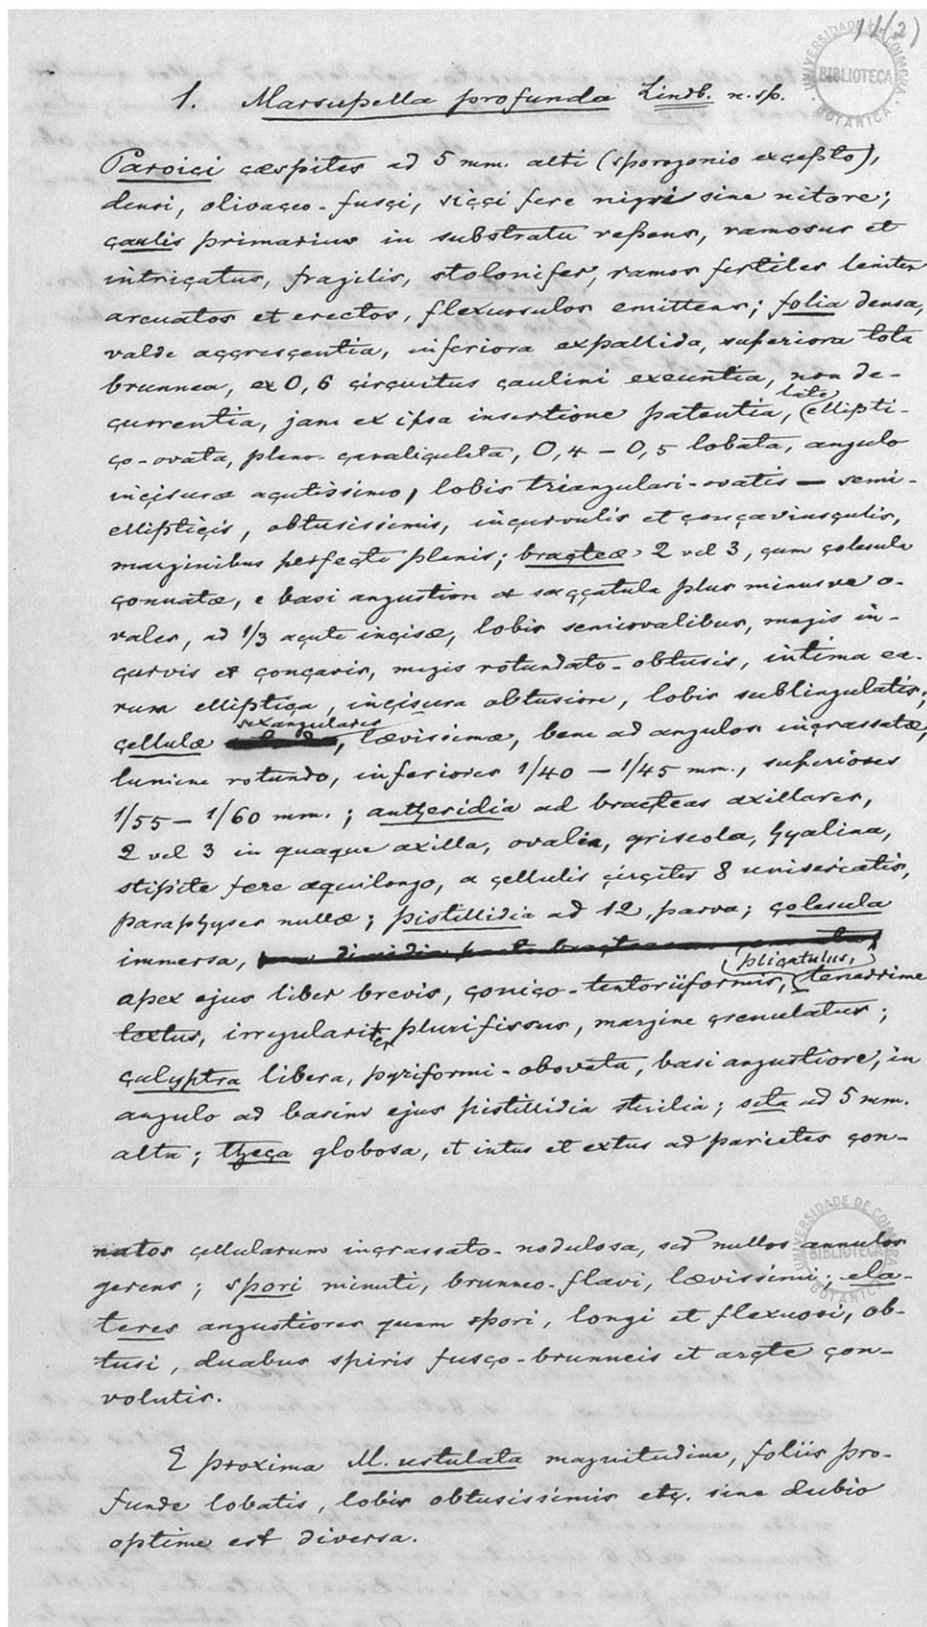 11(2)
UNIVERSIDADE DE COIMBRA
BIBLIOTECA
BOTANICA
1. Marsupella profunda Lindb. n. sp.
Paroici cæspites ad 5 mm. alti (sporogonio excepto),
densi, olivaceo-fusci, sicci fere nigri sine nitore;
caulis primarius in substratu repens, ramosus et
intricatus, fragilis, stolonifer, ramos fertiles leniter
arcuatos et erectos, flexuosulos emittens; folia densa,
valde accrescentia, inferiora expallida, superiora tota
brunnea, ex 0,6 circuitus caulini exeuntia, non de-
currentia, jam ex ipsa insertione patentia, late ellipti-
co-ovata, plano-canaliculata, 0,4 — 0,5 lobata, angulo
incisuræ acutissimo, lobis triangulari-ovatis — semi-
ellipticis, obtusissimis, incurvulis et concaviusculis,
marginibus perfecte planis; bracteæ 2 vel 3, cum colesula
connatæ, e basi angustiore et saccatula plus minusve o-
vales, ad 1/3 acute incisæ, lobis semiovalibus, magis in-
curvis et concavis, magis rotundato-obtusis, intima ea-
rum elliptica, incisura obtusiore, lobis sublingulatis;
cellulæ sexangulares, lævissimæ, bene ad angulos incrassatæ,
lumine rotundo, inferiores 1/40 — 1/45 mm., superiores
1/55 — 1/60 mm.; antheridia ad bracteas axillares,
2 vel 3 in quaque axilla, ovalia, griseola, hyalina,
stipite fere æquilongo, a cellulis circiter 8 uniseriatis,
paraphyses nullæ; pistillidia ad 12, parva; colesula
immersa,
apex ejus liber brevis, conico-tentoriiformis, plicatulus, tenerrime
textus, irregulariter plurifissus, margine crenulatus;
calyptra libera, pyriformi-obovata, basi angustiore, in
angulo ad basim ejus pistillidia sterilia; seta ad 5 mm.
alta; theca globosa, et intus et extus ad parietes con-
natos cellularum incrassato-nodulosa, sed nullos annulos
gerens; spori minuti, brunneo-flavi, lævissimi; ela-
teres angustiores quam spori, longi et flexuosi, ob-
tusi, duabus spiris fusco-brunneis et arcte con-
volutis.
UNIVERSIDADE DE COIMBRA
BIBLIOTECA
BOTANICA
E proxima M. ustulata magnitudine, foliis pro-
funde lobatis, lobis obtusissimis etc. sine dubio
optime est diversa.